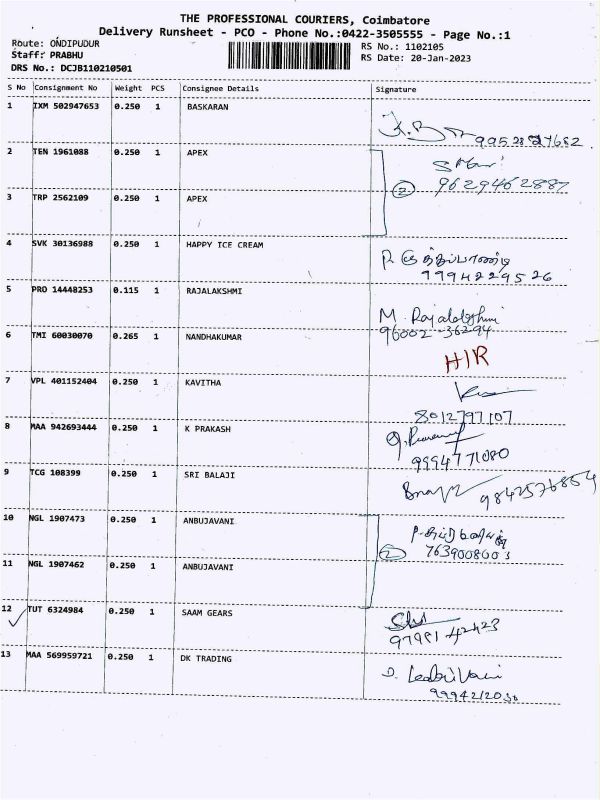 THE PROFESSIONAL COURIERS, Coimbatore
Delivery Runsheet - PCO - Phone No.:0422-3505555 - Page No.:1
Route: ONDIPUDUR
RS No.: 1102105
Staff: PRABHU
RS Date: 20-Jan-2023
DRS No.: DCJB110210501
S No Consignment No Weight PCS Consignee Details Signature
1 IXM 502947653 0.250 1 BASKARAN
2 TEN 1961088 0.250 1 APEX
9629462887
2
3 TRP 2562109 0.250 1 APEX
4 SVK 30136988 0.250 1 HAPPY ICE CREAM
9994229526
5 PRO 14448253 0.115 1 RAJALAKSHMI
M. Rajalakshmi
96002-36294
6 TMI 60030070 0.265 1 NANDHAKUMAR
H/R
7 VPL 401152404 0.250 1 KAVITHA
8012797107
8 MAA 942693444 0.250 1 K PRAKASH
9994771080
9 TCG 108399 0.250 1 SRI BALAJI
9842576854
10 NGL 1907473 0.250 1 ANBUJAVANI
2
11 NGL 1907462 0.250 1 ANBUJAVANI
12 TUT 6324984 0.250 1 SAAM GEARS
13 MAA 569959721 0.250 1 DK TRADING